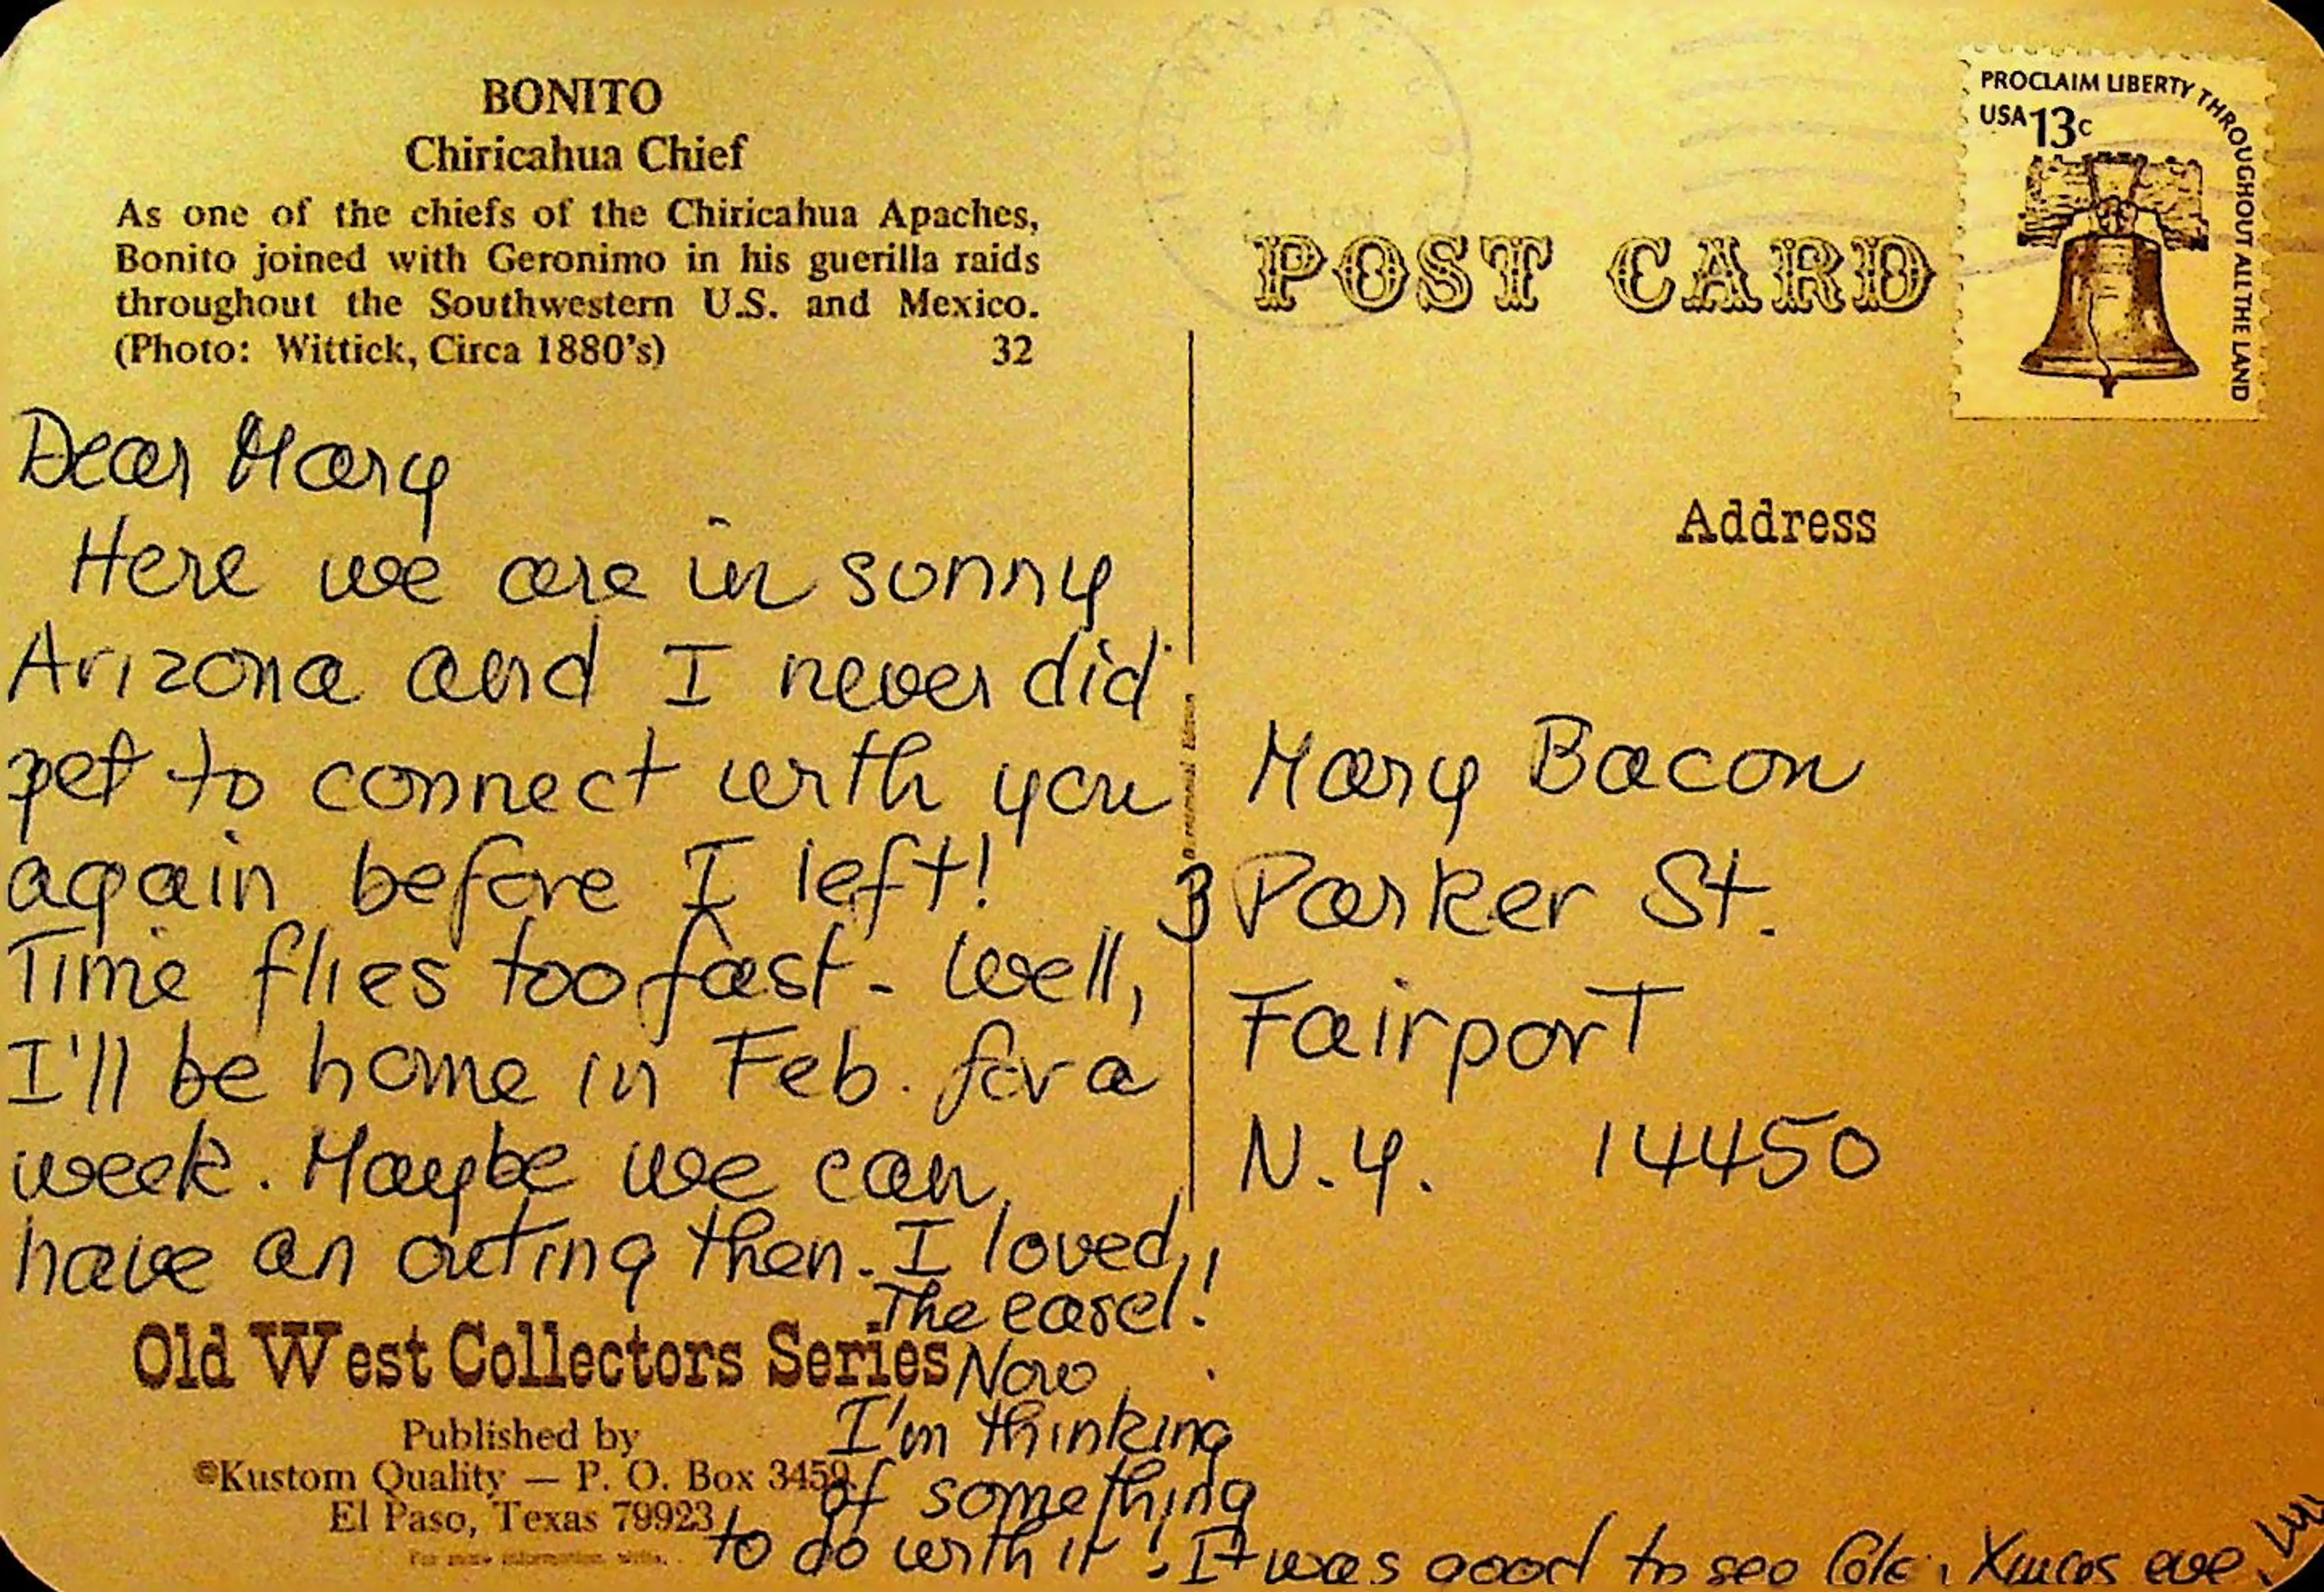 BONITO
Chiricahua Chief
As one of the chiefs of the Chiricahua Apaches,
Bonito joined with Geronimo in his guerilla raids
throughout the Southwestern U.S. and Mexico.
(Photo: Wittick, Circa 1880's) 32
Dear Mary
Here we are in sunny
Arizona and I never did
get to connect with you
again before I left!
Time flies too fast - Well,
I'll be home in Feb. for a
week. Maybe we can
have an outing then. I loved
The easel!
Now
I'm thinking
of something
to do with it! It was good to see Xmas eve.
Old West Collectors Series
Published by
©Kustom Quality — P. O. Box 3459
El Paso, Texas 79923
For more information write.
POST CARD
PROCLAIM LIBERTY THROUGHOUT ALL THE LAND
USA 13c
Address
Mary Bacon
3 Parker St.
Fairport
N.Y. 14450